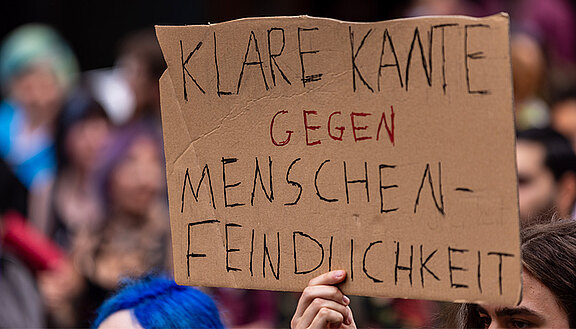 KLARE KANTE
GEGEN
MENSCHEN-
FEINDLICHKEIT